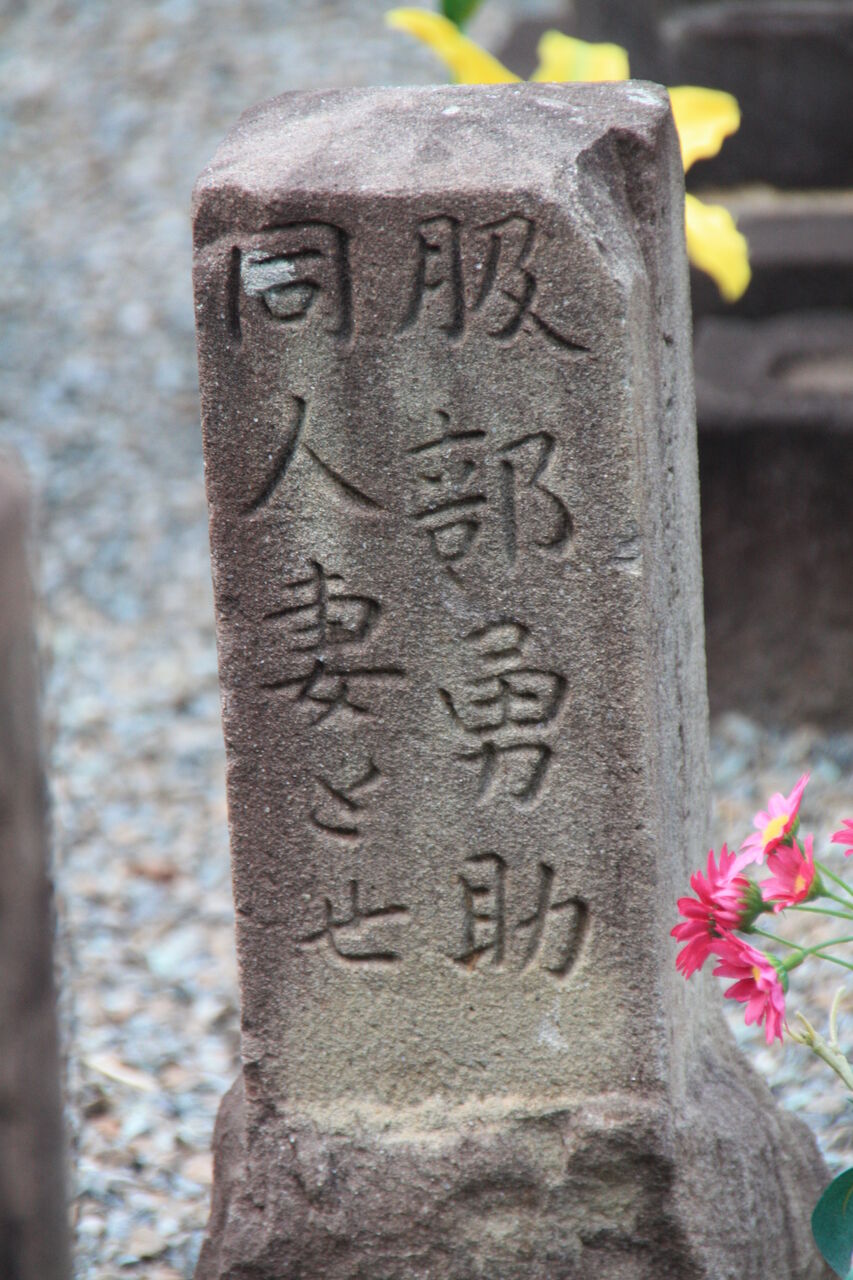 服部勇助
同人妻と世